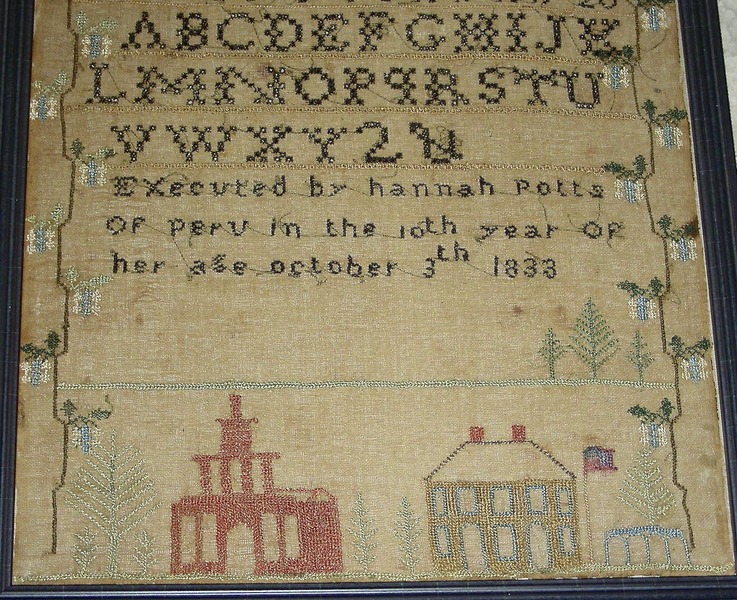 ABCDEFGHIJK
LMNOPQRSTU
VWXYZ&
Executed by hannah Potts
OF peru in the 10th year OF
her age october 3th 1833